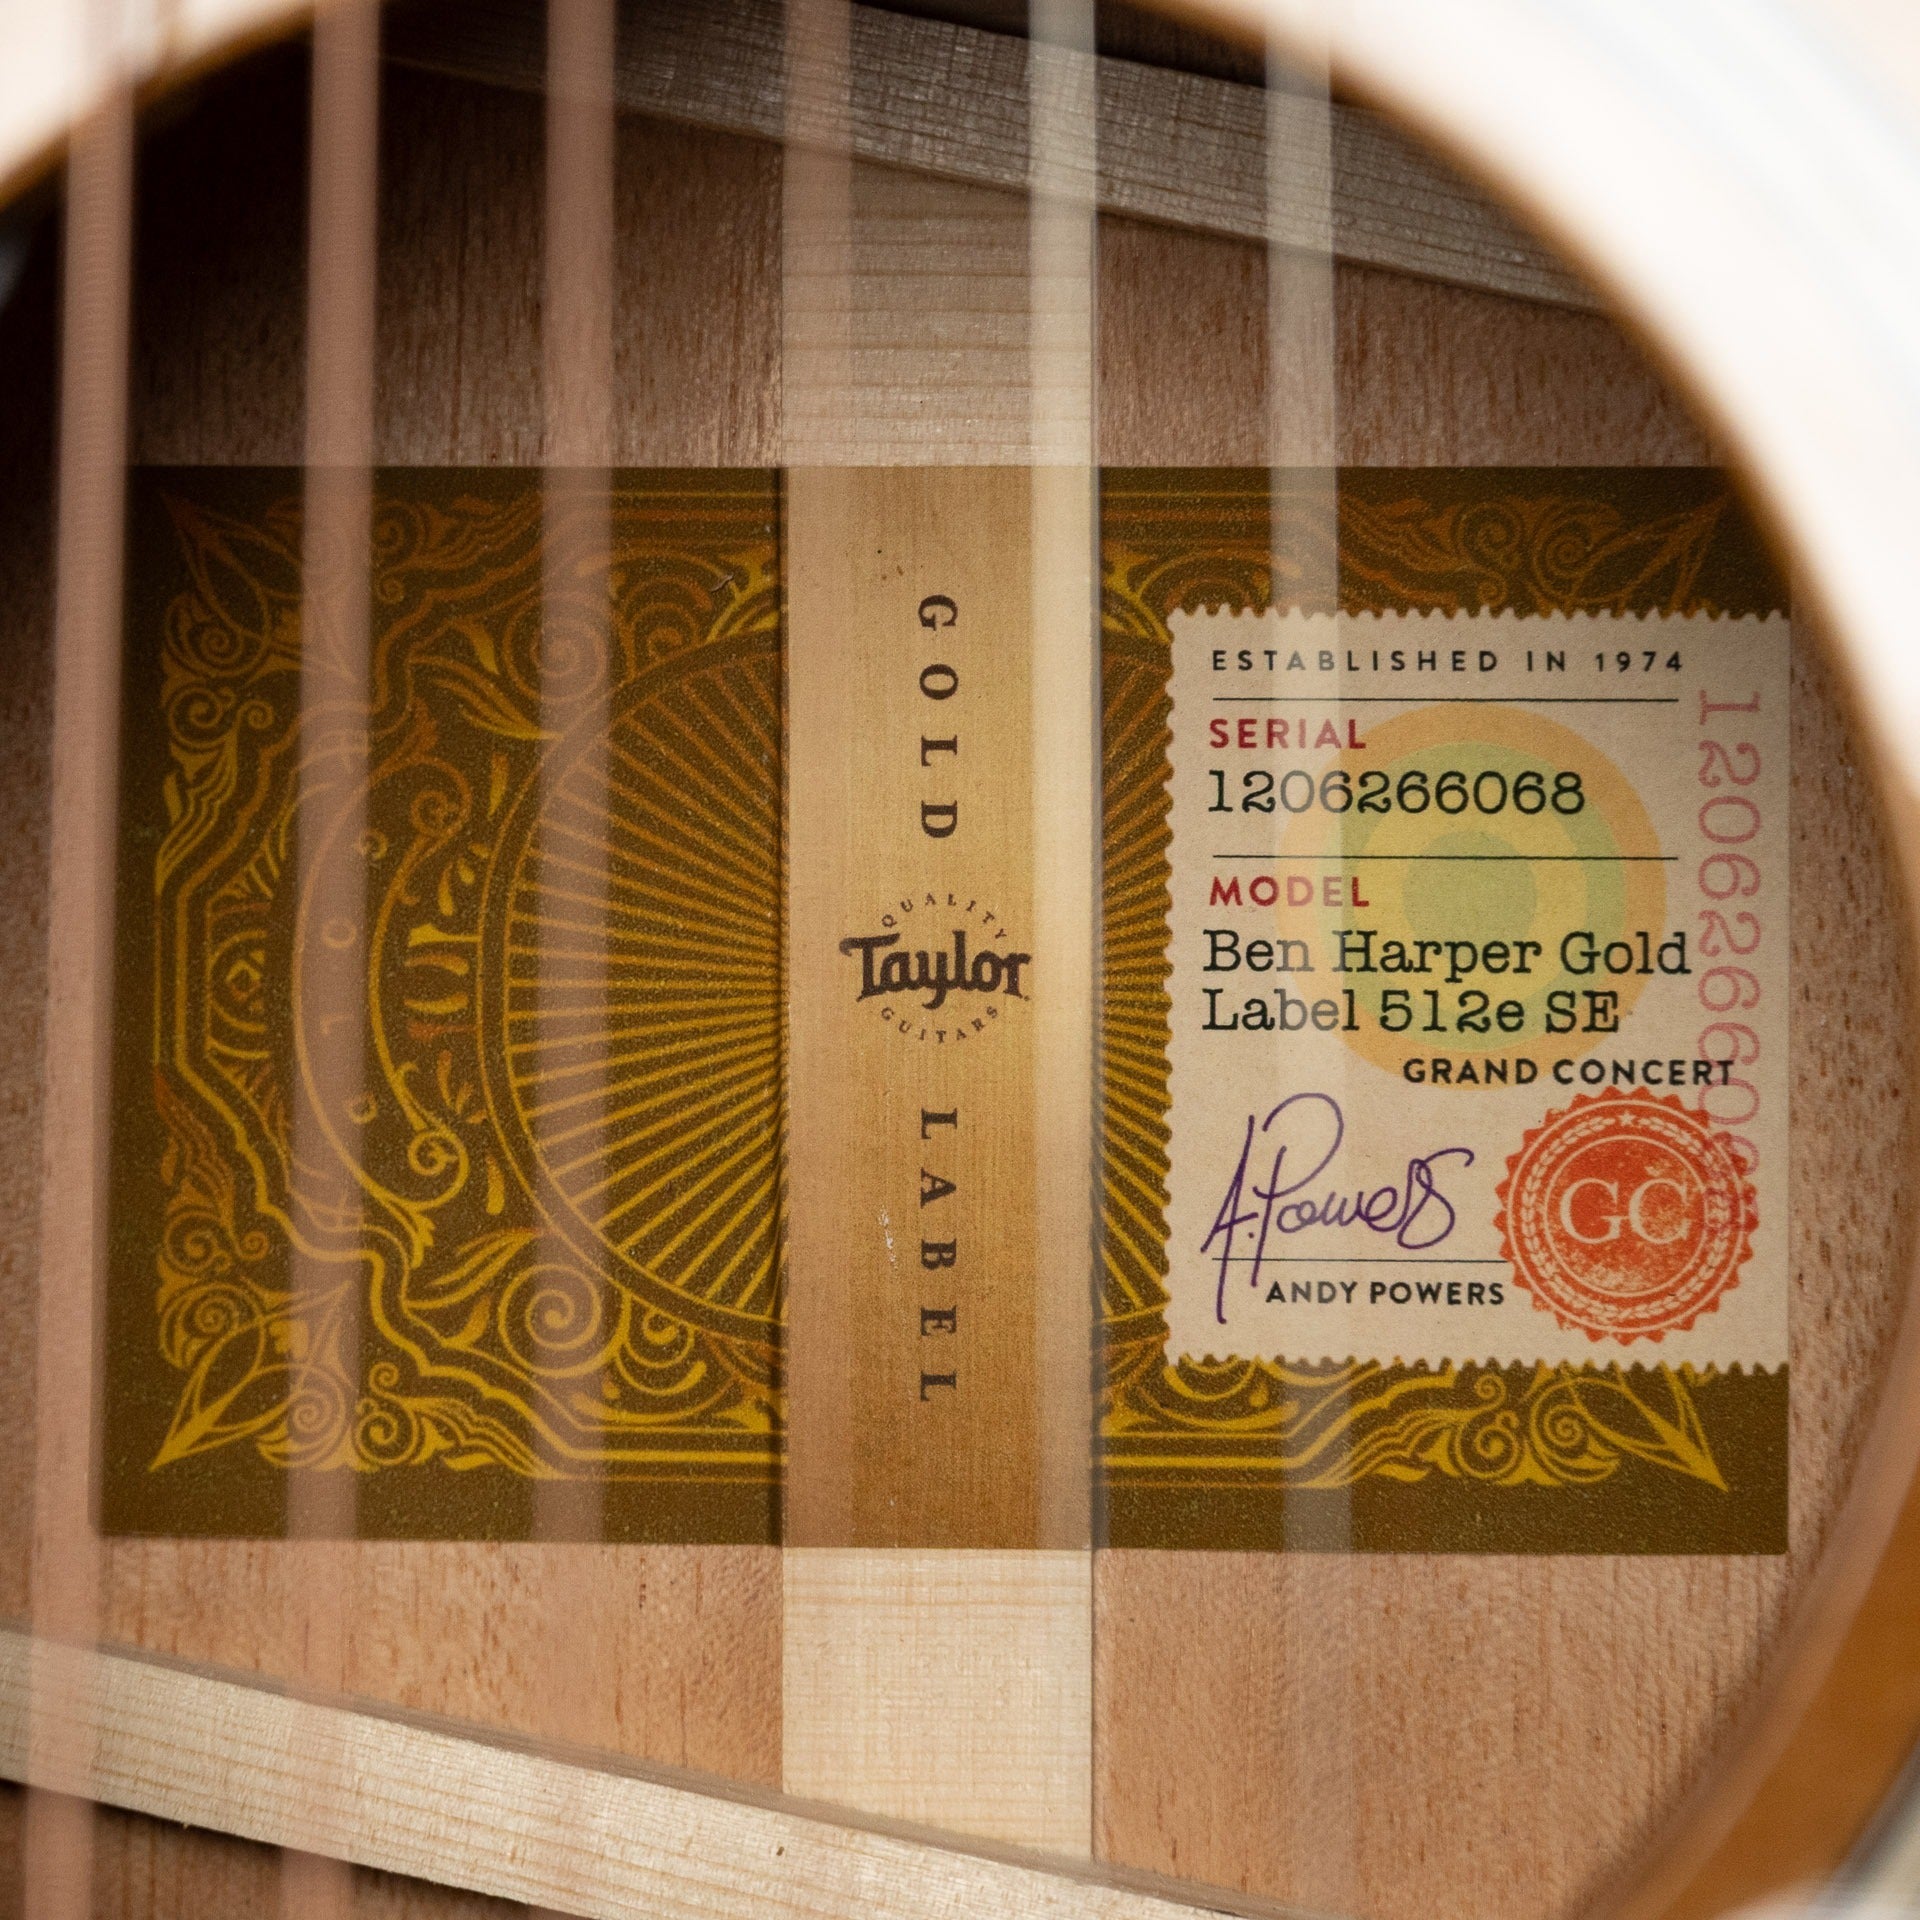 GOLD LABEL
QUALITY
Taylor
GUITARS
ESTABLISHED IN 1974
SERIAL
1206266068
MODEL
Ben Harper Gold
Label 512e SE
GRAND CONCERT
A. Powers
ANDY POWERS
GC
120626606